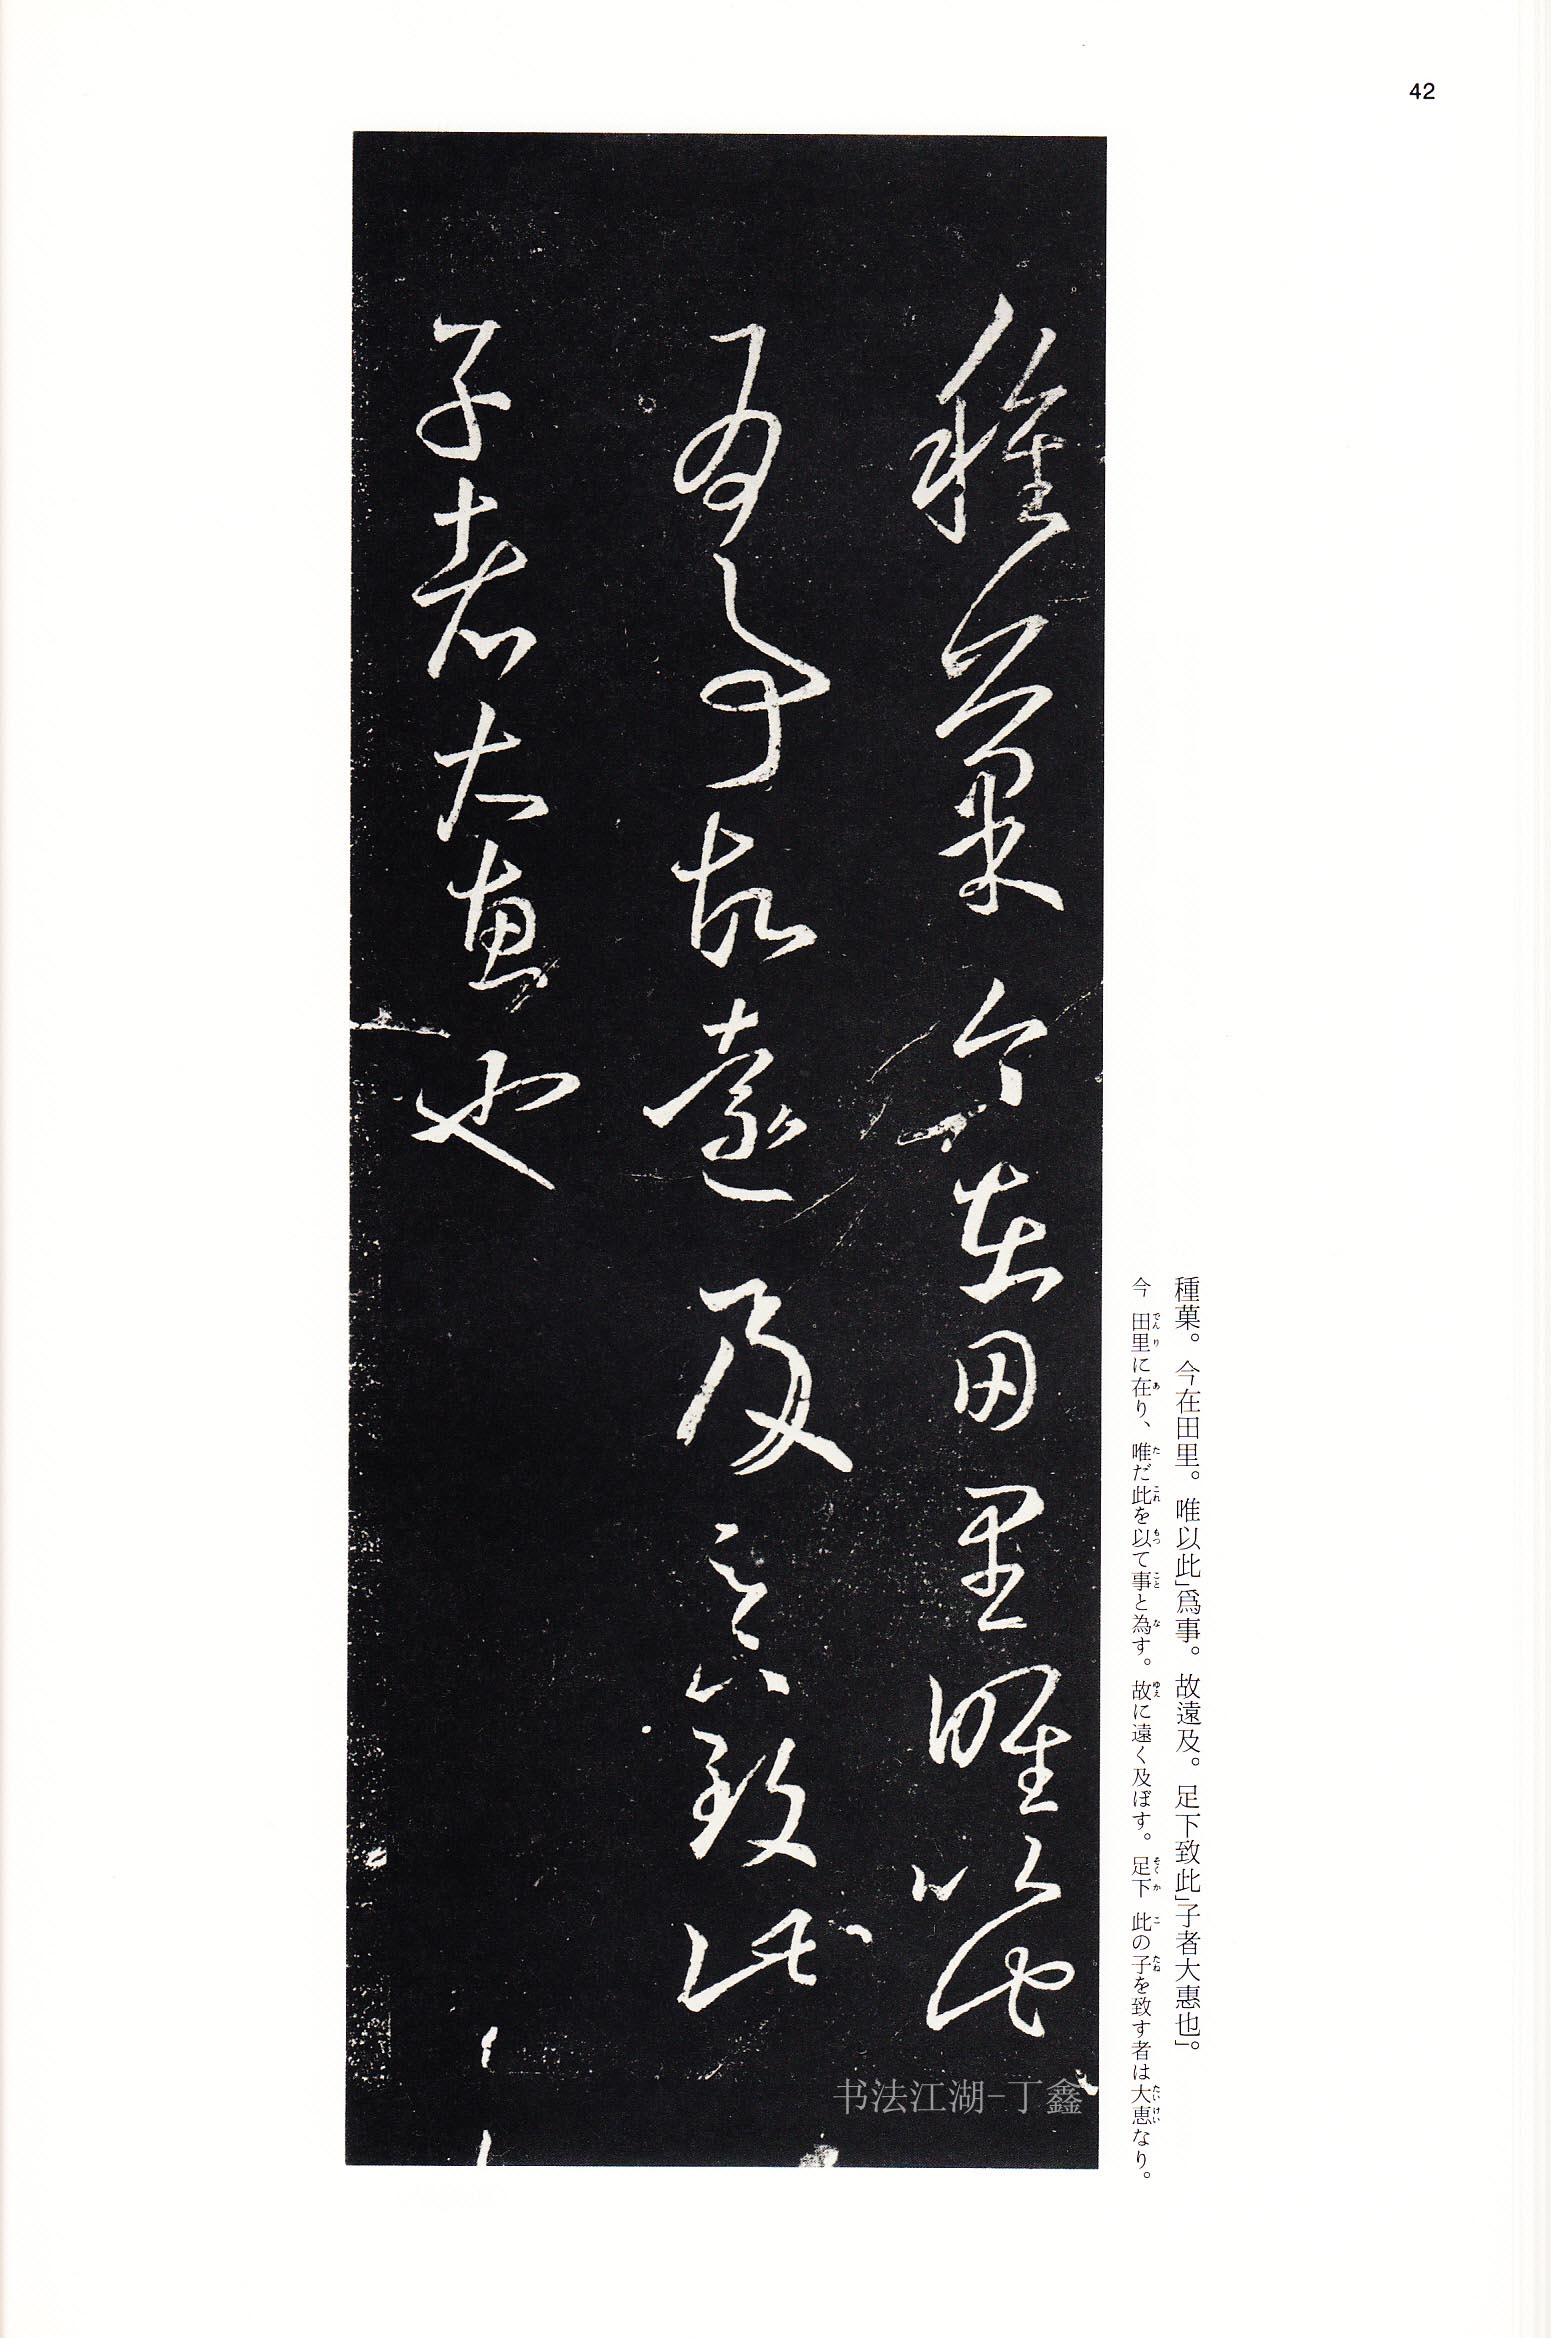 42
種菓今在田里唯以此
爲事故遠及足下致此
子者大惠也
種菓。今在田里。唯以此」爲事。故遠及。足下致此」子者大惠也」。
今 田里に在り、唯だ此を以て事と為す。故に遠く及ぼす。足下 此の子を致す者は大恵なり。
书法江湖-丁鑫